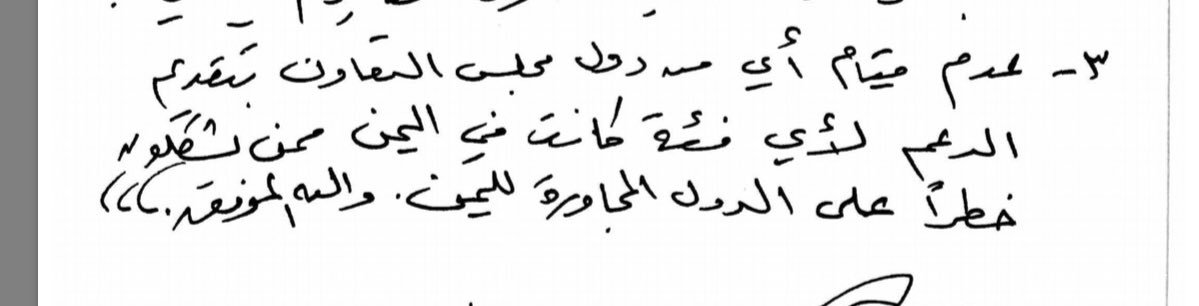 ٣- عدم قيام أي من دول مجلس التعاون بتقديم
الدعم لأي فئة كانت في اليمن ممن يشكلون
خطراً على الدول المجاورة لليمن. والله الموفق.))))